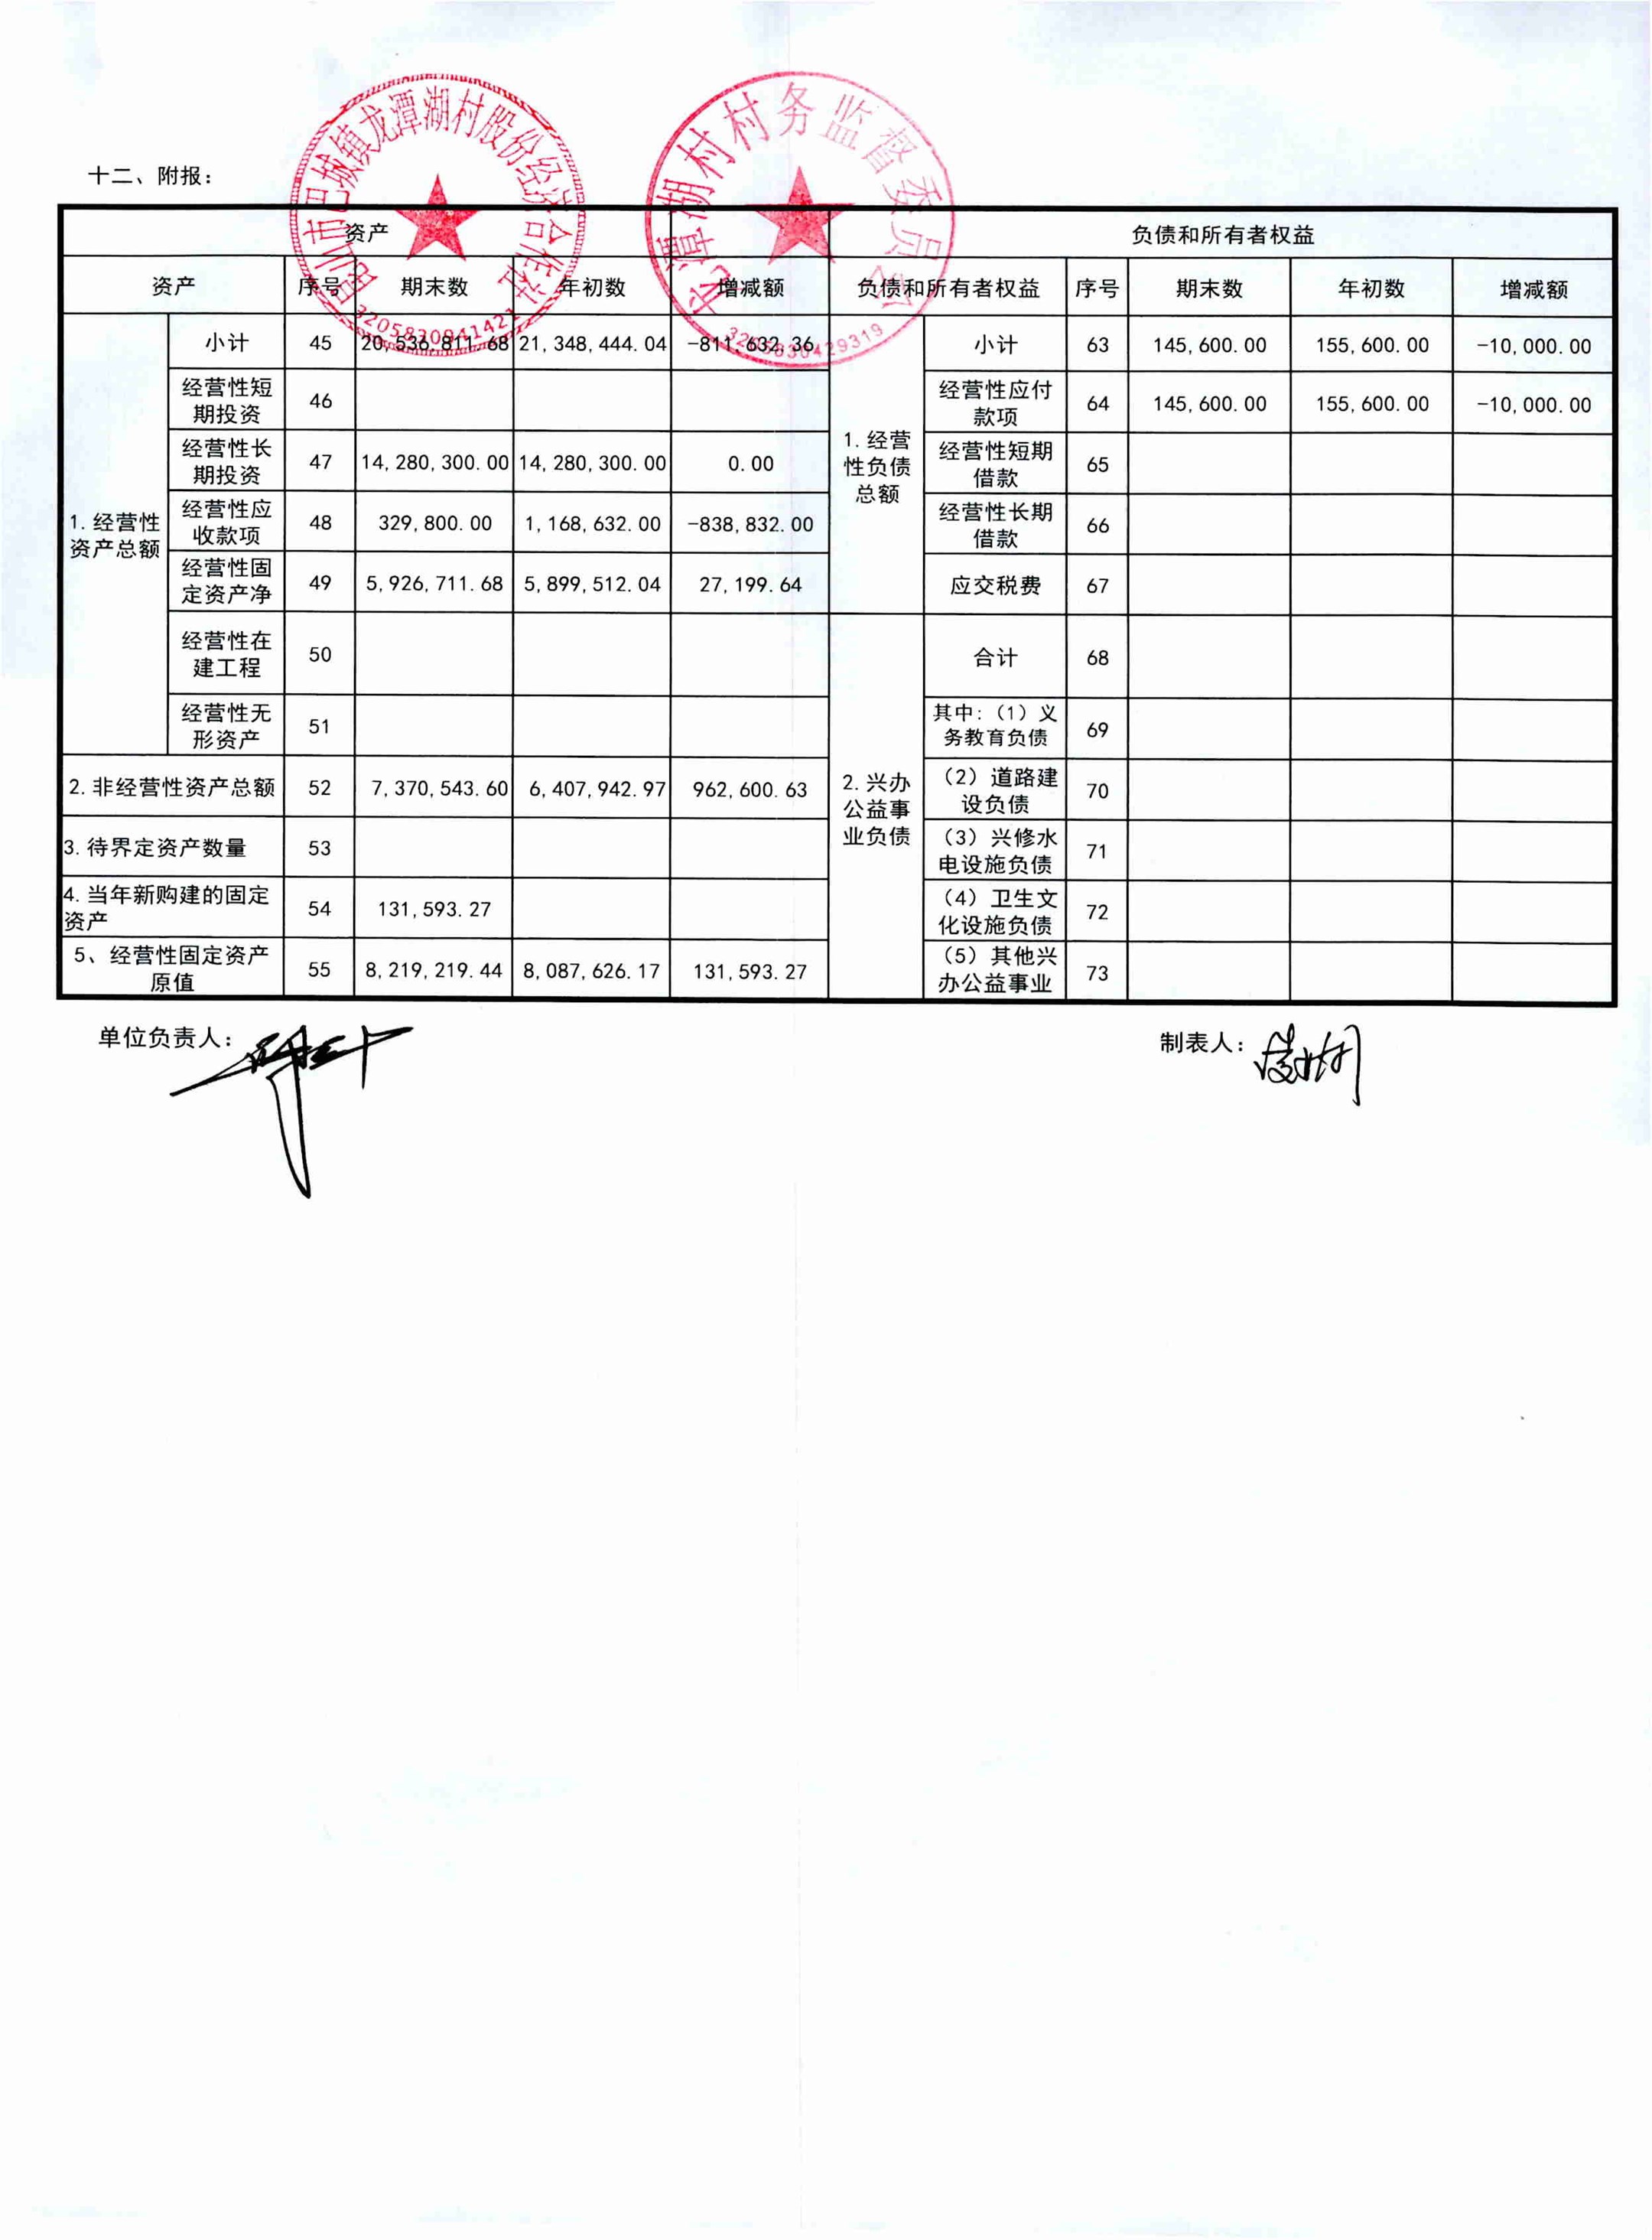 昆山市巴城镇龙潭湖村股份经济合作社
3205830941421
龙潭湖村村务监督委员会
3205830429319
十二、附报：
资产 负债和所有者权益
资产 序号 期末数 年初数 增减额 负债和所有者权益 序号 期末数 年初数 增减额
1.经营性资产总额 小计 45 20,536,811.68 21,348,444.04 -811,632.36 1.经营性负债总额 小计 63 145,600.00 155,600.00 -10,000.00
经营性短期投资 46 经营性应付款项 64 145,600.00 155,600.00 -10,000.00
经营性长期投资 47 14,280,300.00 14,280,300.00 0.00 经营性短期借款 65
经营性应收款项 48 329,800.00 1,168,632.00 -838,832.00 经营性长期借款 66
经营性固定资产净 49 5,926,711.68 5,899,512.04 27,199.64 应交税费 67
经营性在建工程 50 2.兴办公益事业负债 合计 68
经营性无形资产 51 其中：（1）义务教育负债 69
2.非经营性资产总额 52 7,370,543.60 6,407,942.97 962,600.63 （2）道路建设负债 70
3.待界定资产数量 53 （3）兴修水电设施负债 71
4.当年新购建的固定资产 54 131,593.27 （4）卫生文化设施负债 72
5、经营性固定资产原值 55 8,219,219.44 8,087,626.17 131,593.27 （5）其他兴办公益事业 73
单位负责人： 制表人：